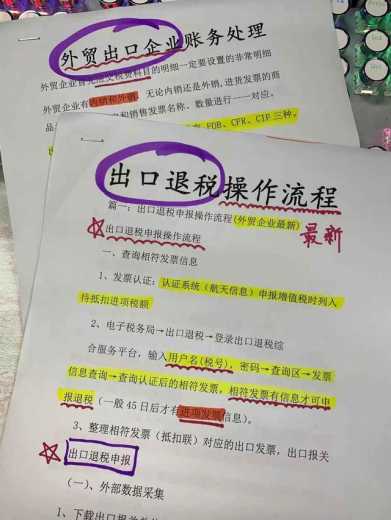 外贸出口企业账务处理
外贸企业首先应交税费科目的明细一定要设置的非常明细
外贸企业有内销和外销，无论内销还是外销，进货发票的商
品名称和销售发票名称、数量进行一一对应。
FOB、CFR、CIF 三种，
出口退税操作流程
篇一：出口退税申报操作流程(外贸企业最新)
最新
出口退税申报操作流程
一、查询相符发票信息
1、发票认证：认证系统（航天信息）申报增值税时列入
待抵扣进项税额
2、电子税务局→出口退税→登录出口退税综
合服务平台，输入用户名(税号)，密码→查询区→发票
信息查询→查询认证后的相符发票，相符发票有信息才可申
报退税（一般 45 日后才有进项发票信息）。
3、整理相符发票（抵扣联）对应的出口发票，出口报关
出口退税申报
（一）、外部数据采集
1、下载出口报关